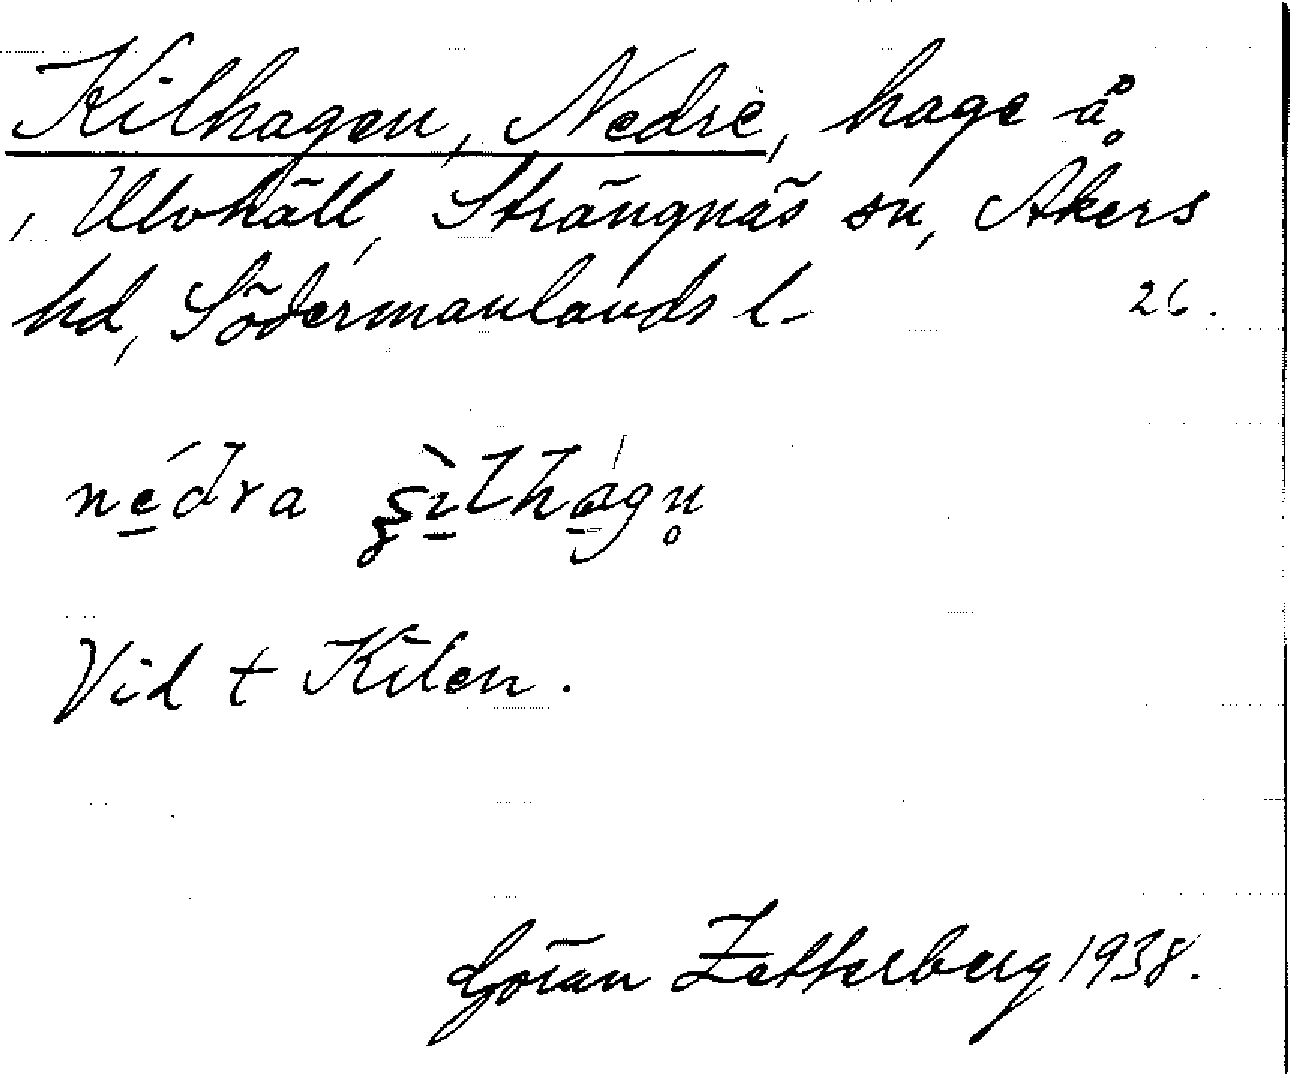 Kilhagen, Nedre, hage å
, Ulvhäll, Strängnäs sn, Åkers
hd, Södermanlands l-
26.
Vid + Kilen.
Göran Zetterberg 1938.